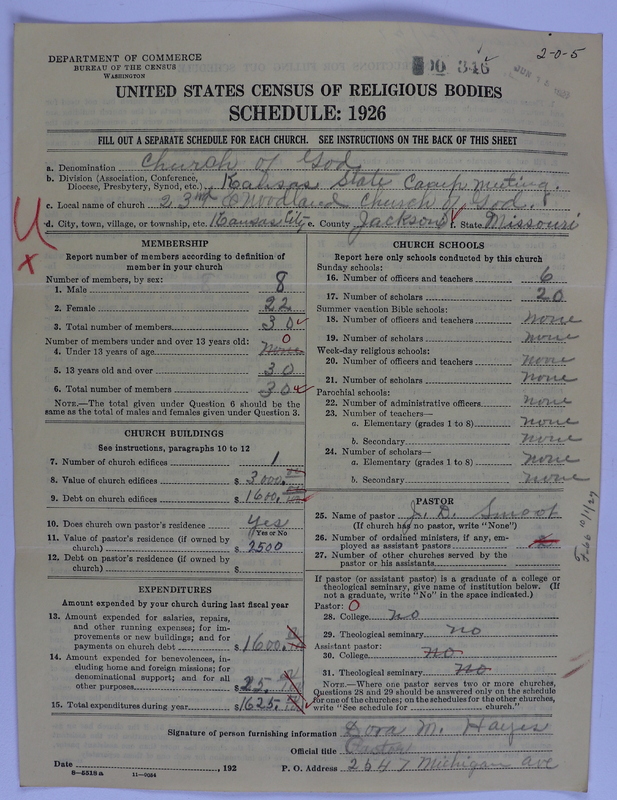 2-0-5
DEPARTMENT OF COMMERCE
BUREAU OF THE CENSUS
WASHINGTON
00 346
UNITED STATES CENSUS OF RELIGIOUS BODIES
SCHEDULE: 1926
FILL OUT A SEPARATE SCHEDULE FOR EACH CHURCH. SEE INSTRUCTIONS ON THE BACK OF THIS SHEET
a. Denomination Church of God
b. Division (Association, Conference, Diocese, Presbytery, Synod, etc.) Kansas State Camp Meeting.
c. Local name of church 23rd & Woodland Church of God.
d. City, town, village, or township, etc. Kansas City e. County Jackson f. State Missouri
U
x
MEMBERSHIP
Report number of members according to definition of
member in your church
Number of members, by sex:
1. Male 8
2. Female 22
3. Total number of members 30
Number of members under and over 13 years old: 0
4. Under 13 years of age none
5. 13 years old and over 30
6. Total number of members 30
NOTE.—The total given under Question 6 should be the
same as the total of males and females given under Question 3.
CHURCH BUILDINGS
See instructions, paragraphs 10 to 12
7. Number of church edifices 1
8. Value of church edifices $ 3,000.
9. Debt on church edifices $ 1600.
10. Does church own pastor's residence yes
(Yes or No)
11. Value of pastor's residence (if owned by
church) $ 2500
12. Debt on pastor's residence (if owned by
church) $
EXPENDITURES
Amount expended by your church during last fiscal year
13. Amount expended for salaries, repairs,
and other running expenses; for im-
provements or new buildings; and for
payments on church debt $ 1600.
14. Amount expended for benevolences, in-
cluding home and foreign missions; for
denominational support; and for all
other purposes $ 25.
15. Total expenditures during year $ 1625.
CHURCH SCHOOLS
Report here only schools conducted by this church
Sunday schools:
16. Number of officers and teachers 6
17. Number of scholars 20
Summer vacation Bible schools:
18. Number of officers and teachers none
19. Number of scholars none
Week-day religious schools:
20. Number of officers and teachers none
21. Number of scholars none
Parochial schools:
22. Number of administrative officers none
23. Number of teachers—
a. Elementary (grades 1 to 8) none
b. Secondary none
24. Number of scholars—
a. Elementary (grades 1 to 8) none
b. Secondary none
PASTOR
25. Name of pastor J. D. Smoot
(If church has no pastor, write "None")
26. Number of ordained ministers, if any, em-
ployed as assistant pastors
27. Number of other churches served by the
pastor or his assistants
If pastor (or assistant pastor) is a graduate of a college or
theological seminary, give name of institution below. (If
not a graduate, write "No" in the space indicated.)
Pastor: 0
28. College no
29. Theological seminary no
Assistant pastor:
30. College no
31. Theological seminary no
NOTE.—Where one pastor serves two or more churches,
Questions 28 and 29 should be answered only on the schedule
for one of the churches; on the schedules for the other churches,
write "See schedule for church."
10/1/27
Signature of person furnishing information Dora M. Hayes
Official title
Date , 192 P. O. Address 2647 Michigan ave
8—5518 a 11—9034